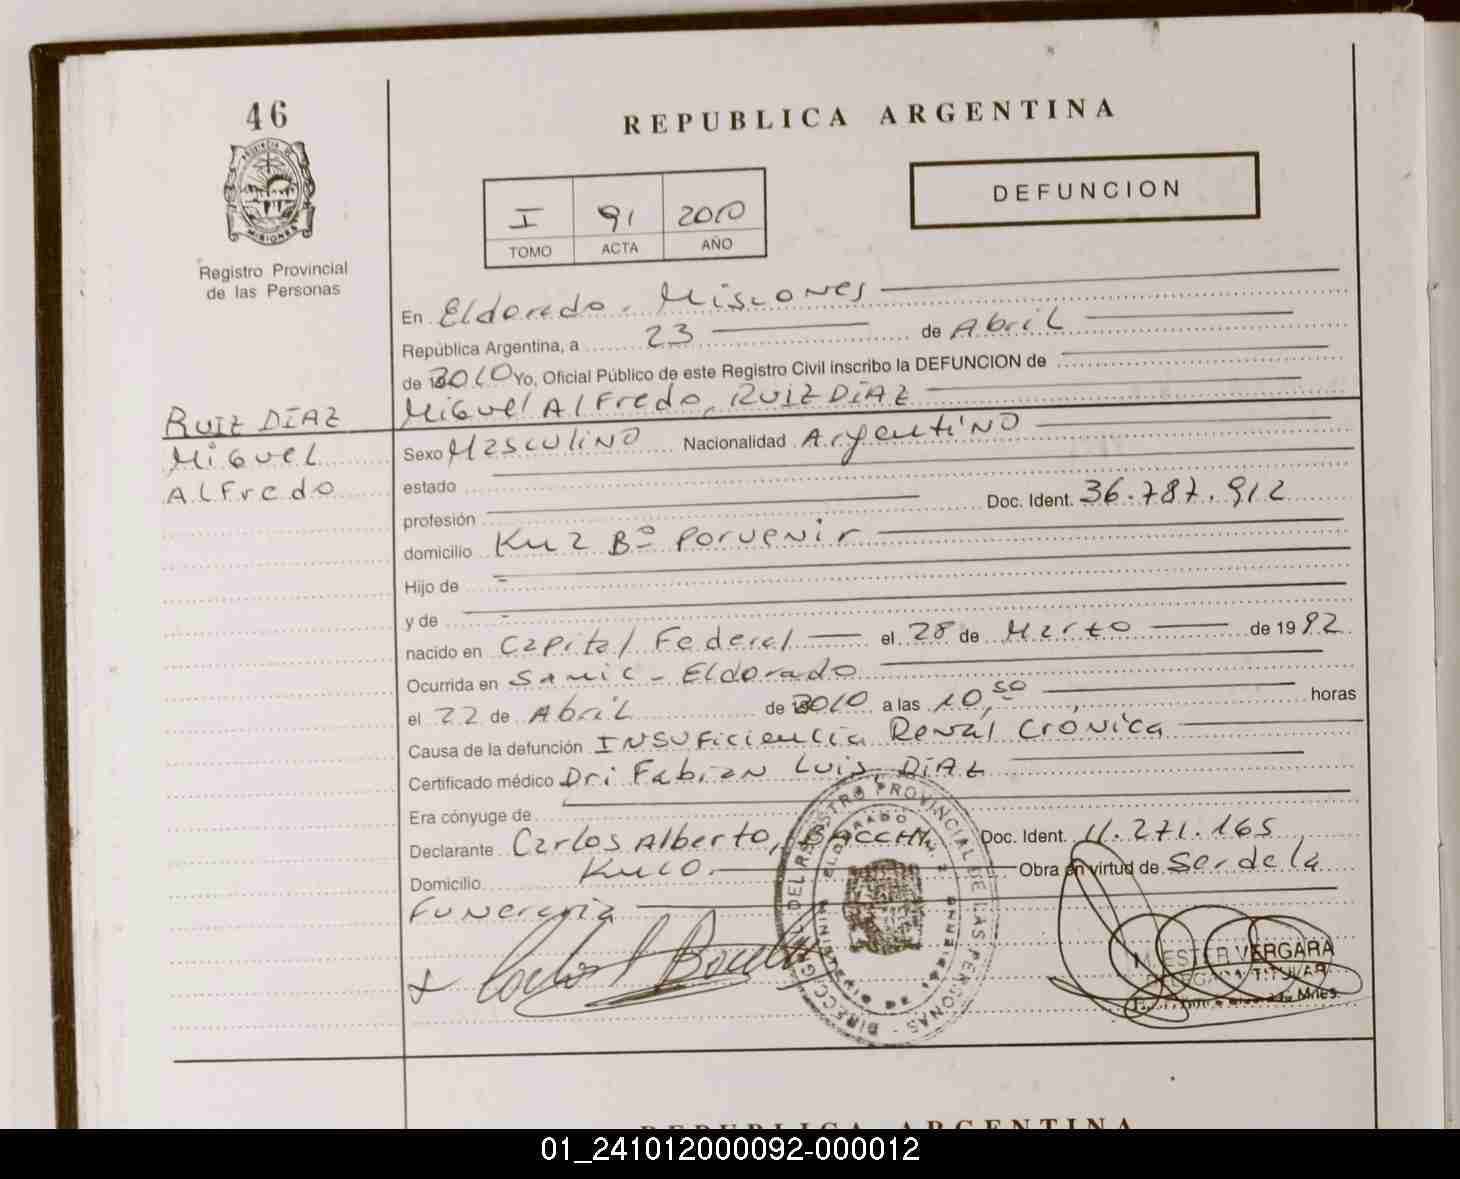 46
REPUBLICA ARGENTINA
DEFUNCION
I 91 2010
TOMO ACTA AÑO
PROVINCIA DE
MISIONES
Registro Provincial
de las Personas
En Eldorado. Misiones
República Argentina, a 23 de Abril
de 2010 Yo, Oficial Público de este Registro Civil inscribo la DEFUNCION de
Miguel Alfredo, RUIZ DÍAZ
RUIZ DÍAZ
Miguel
Alfredo
Sexo Masculino Nacionalidad Argentino
estado
profesión Doc. Ident. 36.787.912
domicilio Km 2 Bº Porvenir
Hijo de
y de
nacido en Capital Federal el 28 de Marzo de 1992
Ocurrida en Samic - Eldorado
el 22 de Abril de 2010 a las 10,50 horas
Causa de la defunción Insuficiencia Renal Crónica
Certificado médico Dr: Fabian Luis, DÍAZ
Era cónyuge de
Declarante Carlos Alberto, Doc. Ident. 11.271.165
Domicilio Km 10. Obra en virtud de Ser de la
Funeraria
DIRECC. GRAL. DEL REGISTRO PROVINCIAL DE LAS PERSONAS
ELDORADO
ESTER VERGARA
TITULAR
Mnes.
REPUBLICA ARGENTINA
01_241012000092-000012